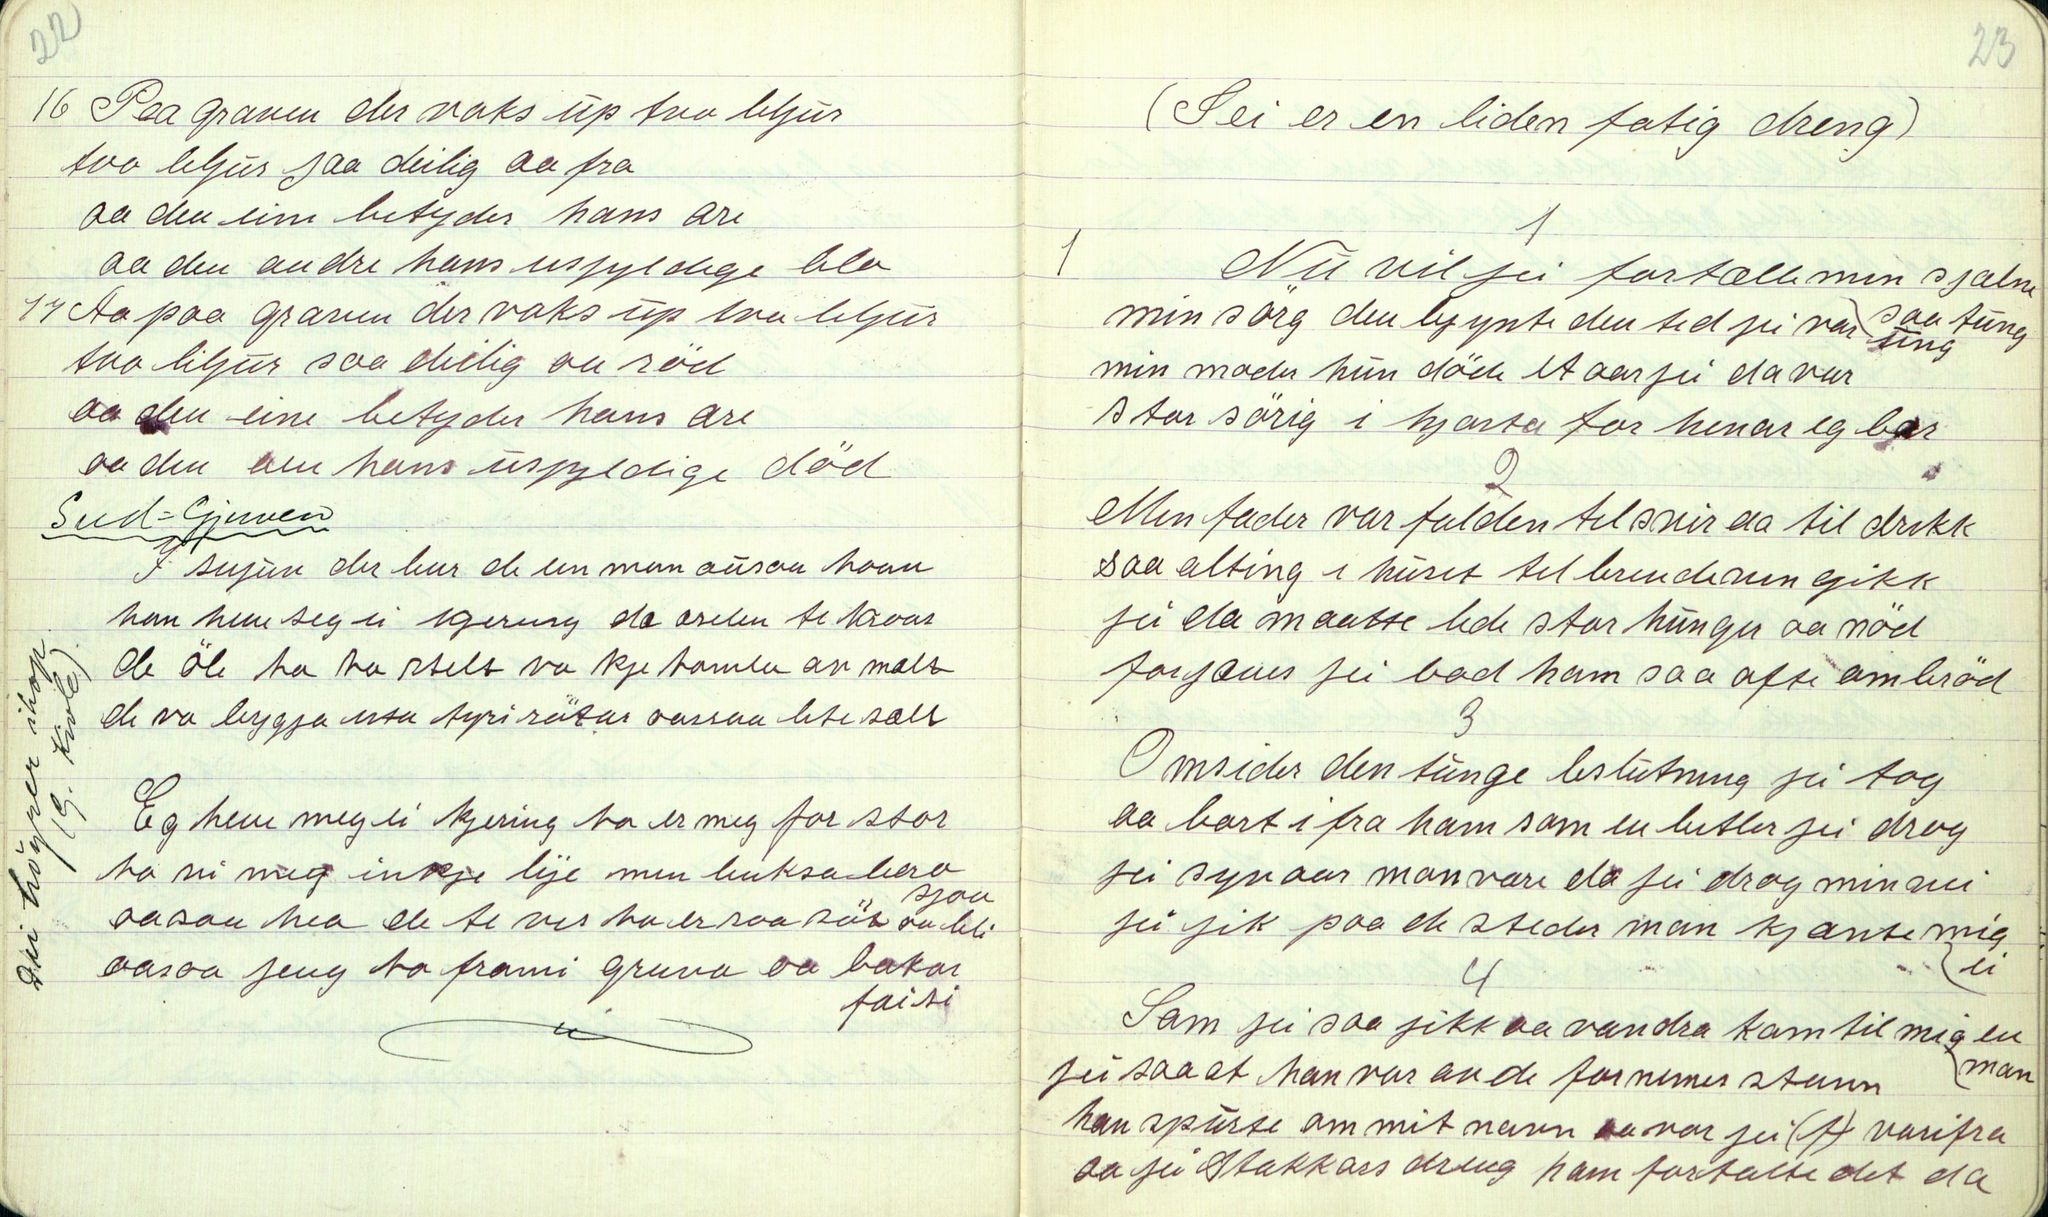 22
16 Paa graven der vaks up tvo liljur
tvo liljur saa deilig aa fra
aa den eine betyder hans ære
aa den andre hans uspyldige blo
17 Aa paa graven der vaks up tvo liljur
tvo liljur saa deilig aa röd
aa den eine betyder hans ære
aa den aen hans uspyldige död
Sud-Gjuven
I sujun der bur de ein man
han heve seg ei kjering
de öle ho ho
de va byggja
Eg heve meg ei kjering ho er meg for stor
ho vi meg inkje lye men buksa bera
sjaa
aasaa hea de te ves ho er saa söt aa bli
aasaa jeng ho frami gruva aa bakar
faisi
Dei höyrer ihop
(G. Kvole)
23
(Jei er en liden fatig dreng)
1
1 Nu vil jei fortælle min sjæbne
saa tung
min sörg den begynte den tid jei var ung
min moder hun döde et aar jei da var
stor sörig i hjarta for henar eg bar
2
Min fader var falden til svir aa til drikk
saa alting i huset til brendevin gikk
jei da maatte lide stor hunger aa nöd
forjæves jei bad ham saa ofte om bröd
3
Omsider den tunge beslutning jei tog
aa bort ifra ham som en betler jei drog
jei syv aar mon vare da jei drog min vei
jei jik paa de steder man kjænte mig
ei
4
Som jei saa jikk aa vandra kam til mig en
man
jei saa at han var av de fornemes stann
han spurte om mit navn aa var jei (f) varifra
aa jei Stakkars dreng ham fortalte det da